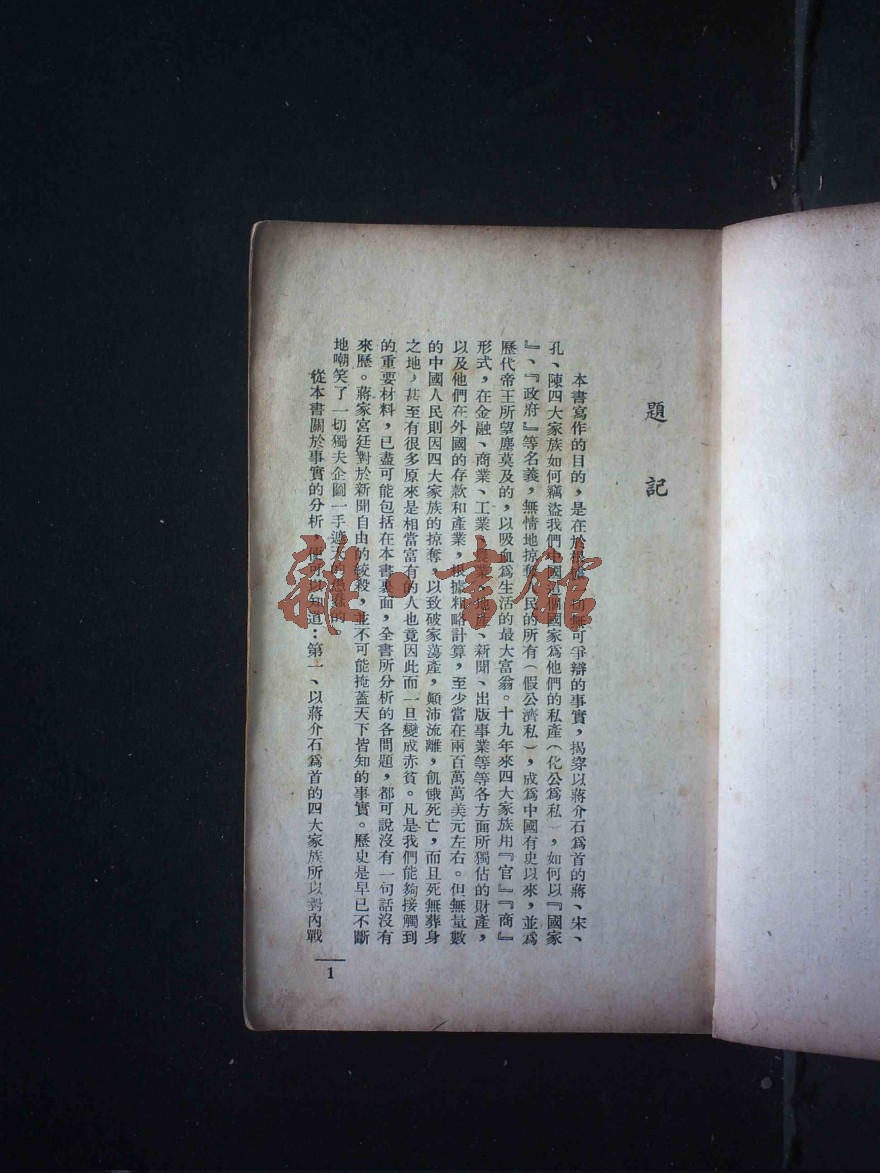 題記
本書寫作的目的，是在於根據一切無可爭辯的事實，揭穿以蔣介石爲首的蔣、宋、
孔、陳四大家族如何竊盜我們中國這個國家爲他們的私產（化公爲私），如何以『國家
』、『政府』等名義，無情地掠奪人民的所有（假公濟私），成爲中國有史以來，並爲
歷代帝王所望塵莫及的，以吸血爲生活的最大富翁。十九年來四大家族用『官』『商』
形式，在金融、商業、工業、農業、地產、新聞、出版事業等等各方面所獨佔的財產，
以及他們在外國的存款和產業，根據粗略計算，至少當在兩百萬萬美元左右。但無量數
的中國人民則因四大家族的掠奪，以致破家蕩產，顚沛流離，飢餓死亡，而且死無葬身
之地，甚至有很多原來是相當富有的人也竟因此而一旦變成赤貧。凡是我們能夠接觸到
的重要材料，已盡可能包括在本書裏面，全書所分析的各問題，都可說沒有一句話沒有
來歷。蔣家宮廷對於新聞自由的絞殺，並不可能掩蓋天下皆知的事實。歷史是早已不斷
地嘲笑了一切獨夫企圖一手遮天的愚蠢的。
從本書關於事實的分析，便可以知道：第一、以蔣介石爲首的四大家族所以對內戰
1
雜·書館